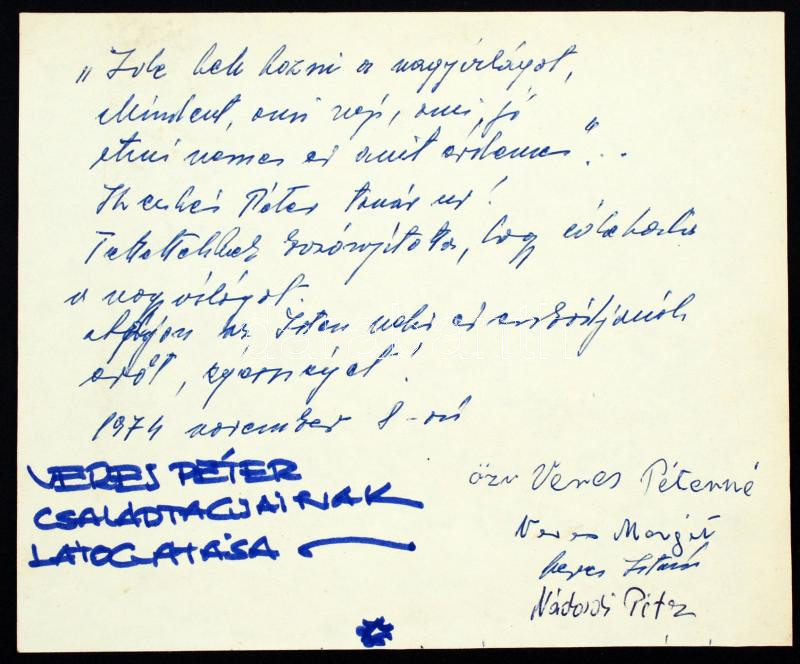 „Ide kell hozni a nagyvilágot,
Mindent, ami szép, ami jó
ami nemes és amit érdemes"...
Péter tanár úr!
hogy
a nagyvilágot.
Adjon az Isten neki és családjának
erőt, egészséget!
1974 november 8-án
VERES PÉTER
CSALÁDTAGJAINAK
LÁTOGATÁSA
özv Veres Péterné
Veres Margit
Veres István
Nádasdi Péter